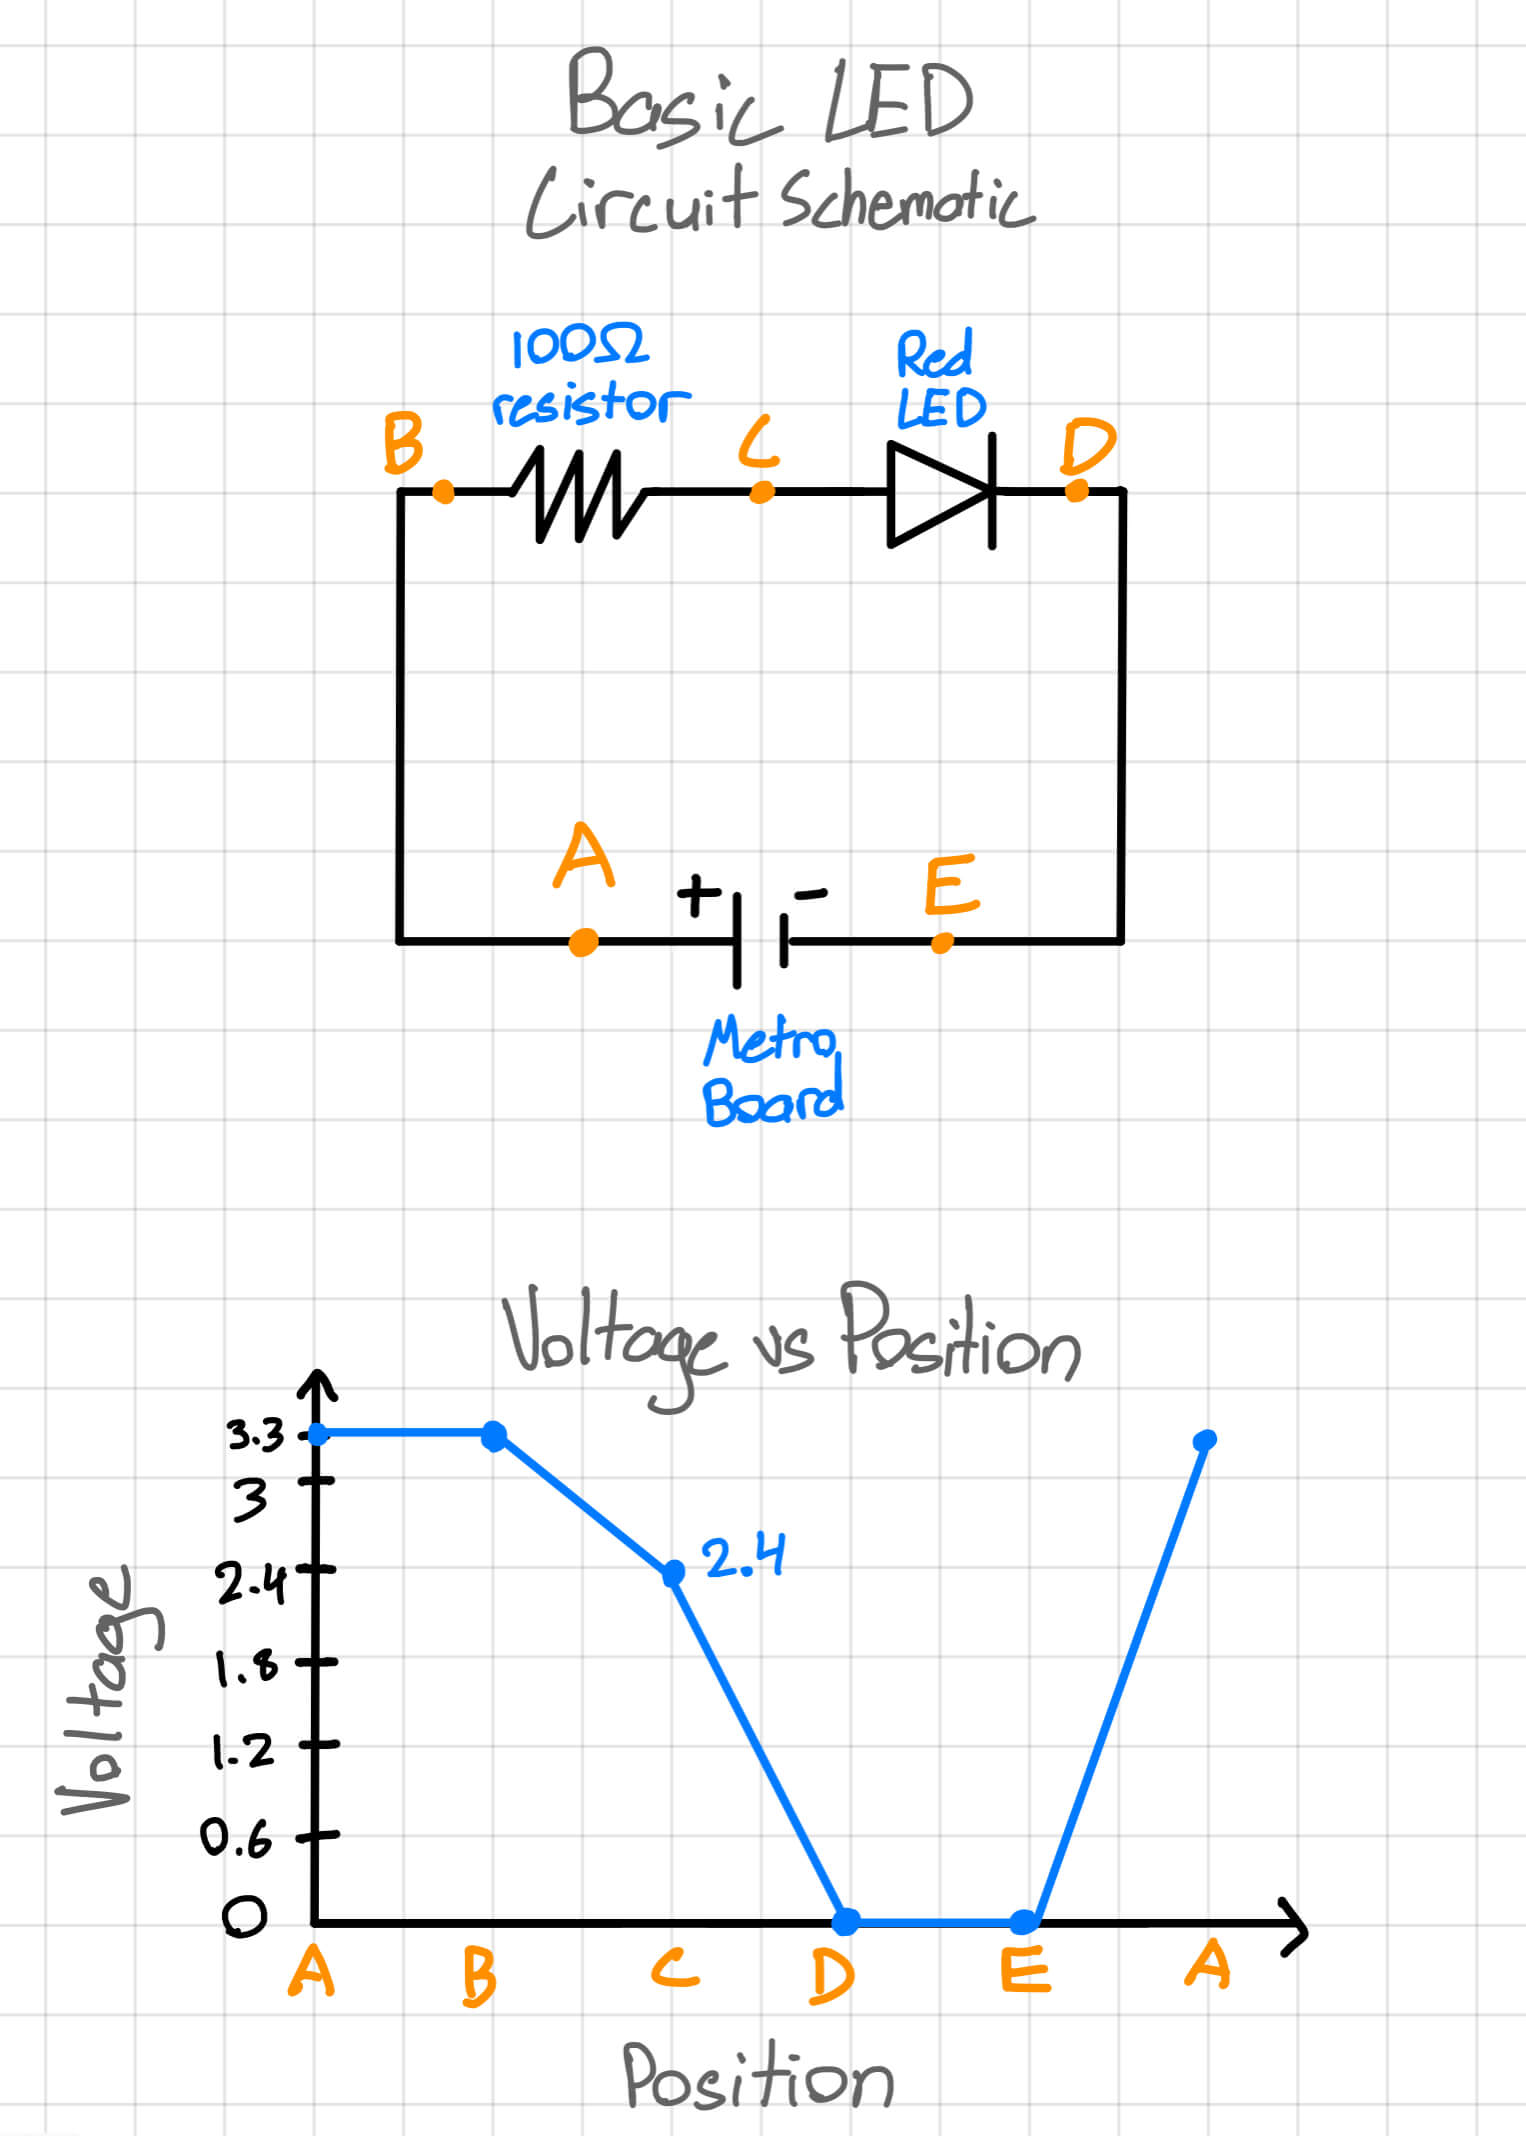 Basic LED
Circuit Schematic
100Ω
resistor
Red
LED
B
C
D
A
+
-
E
Metro
Board
Voltage vs Position
3.3
3
2.4
2.4
1.8
1.2
0.6
0
Voltage
A B C D E A
Position